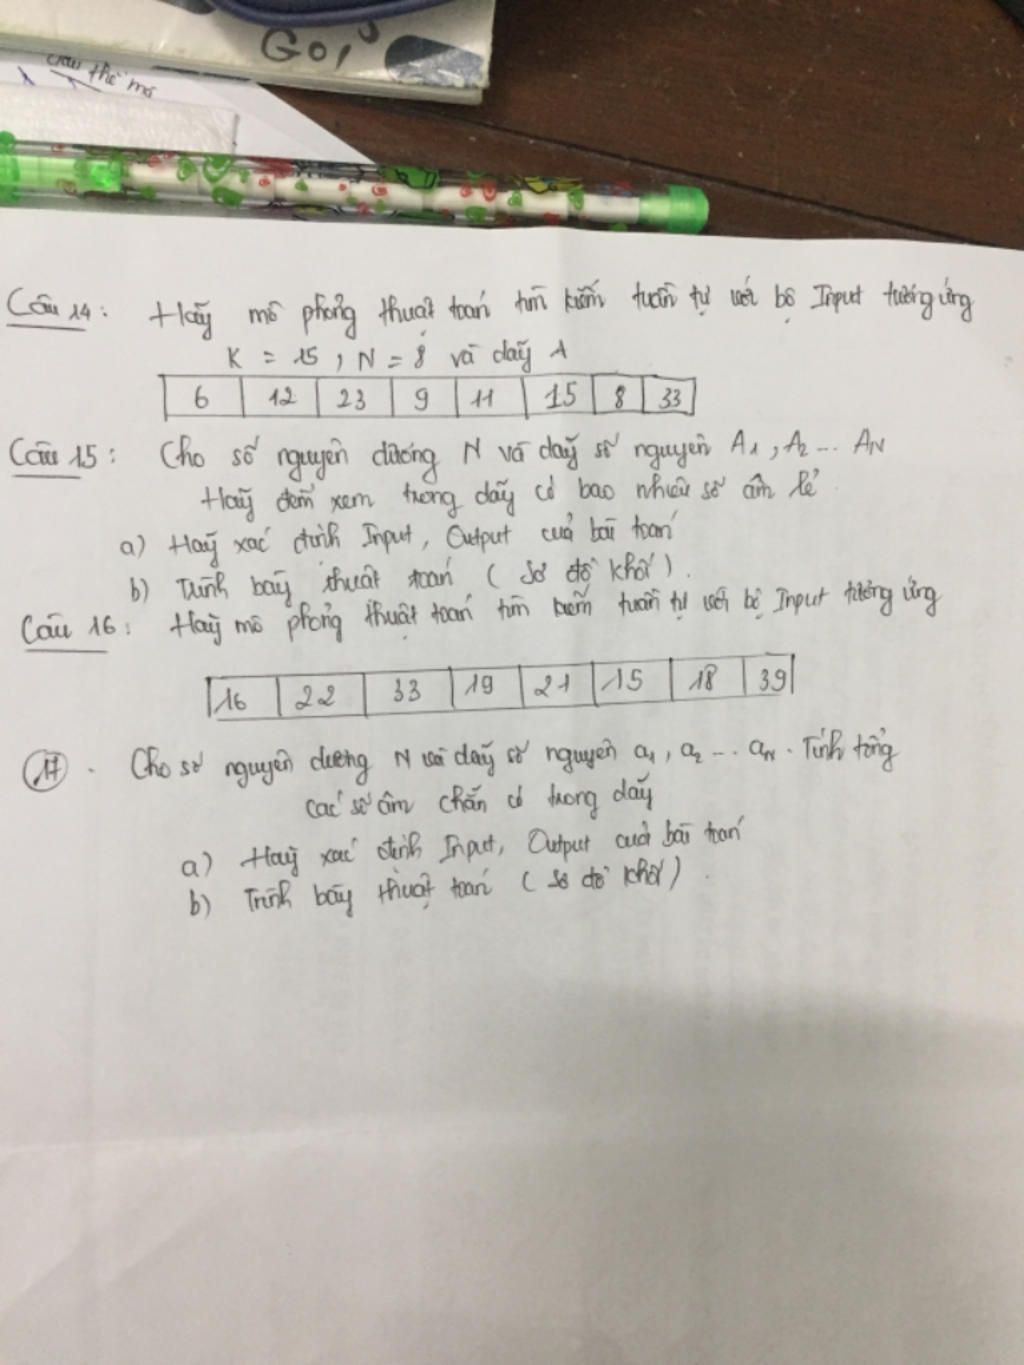 GOI
Câu thể mô
Câu 14: Hãy mô phỏng thuật toán tìm kiếm tuần tự với bộ Input tương ứng
K = 15, N = 8 và dãy A
6 12 23 9 11 15 8 33
Câu 15: Cho số nguyên dương N và dãy số nguyên A1, A2 ... AN
Hãy đếm xem trong dãy có bao nhiêu số âm lẻ.
a) Hãy xác định Input, Output của bài toán
b) Trình bày thuật toán (Sơ đồ khối).
Câu 16: Hãy mô phỏng thuật toán tìm kiếm tuần tự với bộ Input tương ứng
16 22 33 19 21 15 18 39
17. Cho số nguyên dương N và dãy số nguyên a1, a2 ... aN. Tính tổng
các số âm chẵn có trong dãy
a) Hãy xác định Input, Output của bài toán
b) Trình bày thuật toán (Sơ đồ khối).